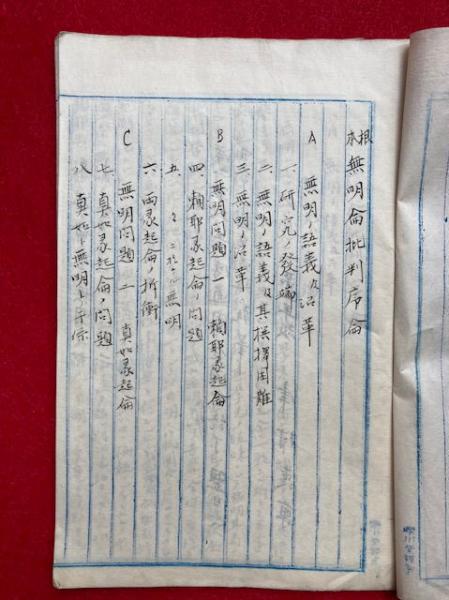 根本無明論批判序論
A 無明ノ語義及沿革
一、研究ノ發端
二、無明ノ語義及其撰擇困難
三、無明ノ沿革
B 無明問題一 賴耶縁起論
四、賴耶縁起論ノ問題
五、〃 ニ於ケル無明
六、両縁起論ノ折衝
C 無明問題二 真如縁起論
七、真如縁起論ノ問題
八、真如ト無明ト